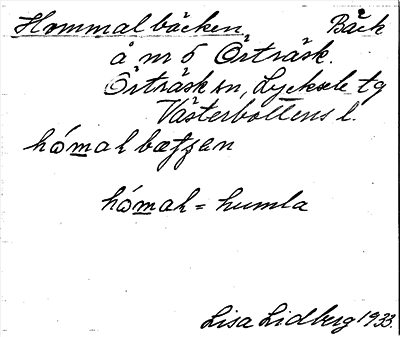 Hommalbäcken Bäck
å m 5 Örträsk.
Örträsk sn, Lycksele tg
Västerbottens l.
hómalbæƫʂen
hómal = humla
Lisa Lidberg 1933.